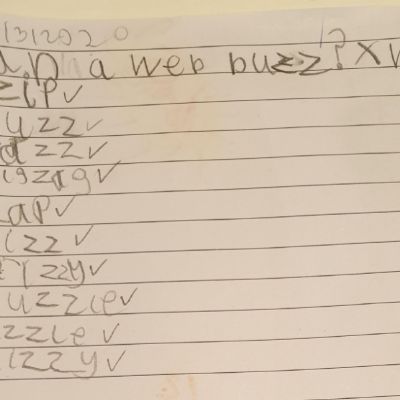 1312020
a web buzz!
zip✓
uzz✓
azz✓
igzag✓
ap✓
izz✓
izzy✓
uzzle✓
zzle✓
izzy✓